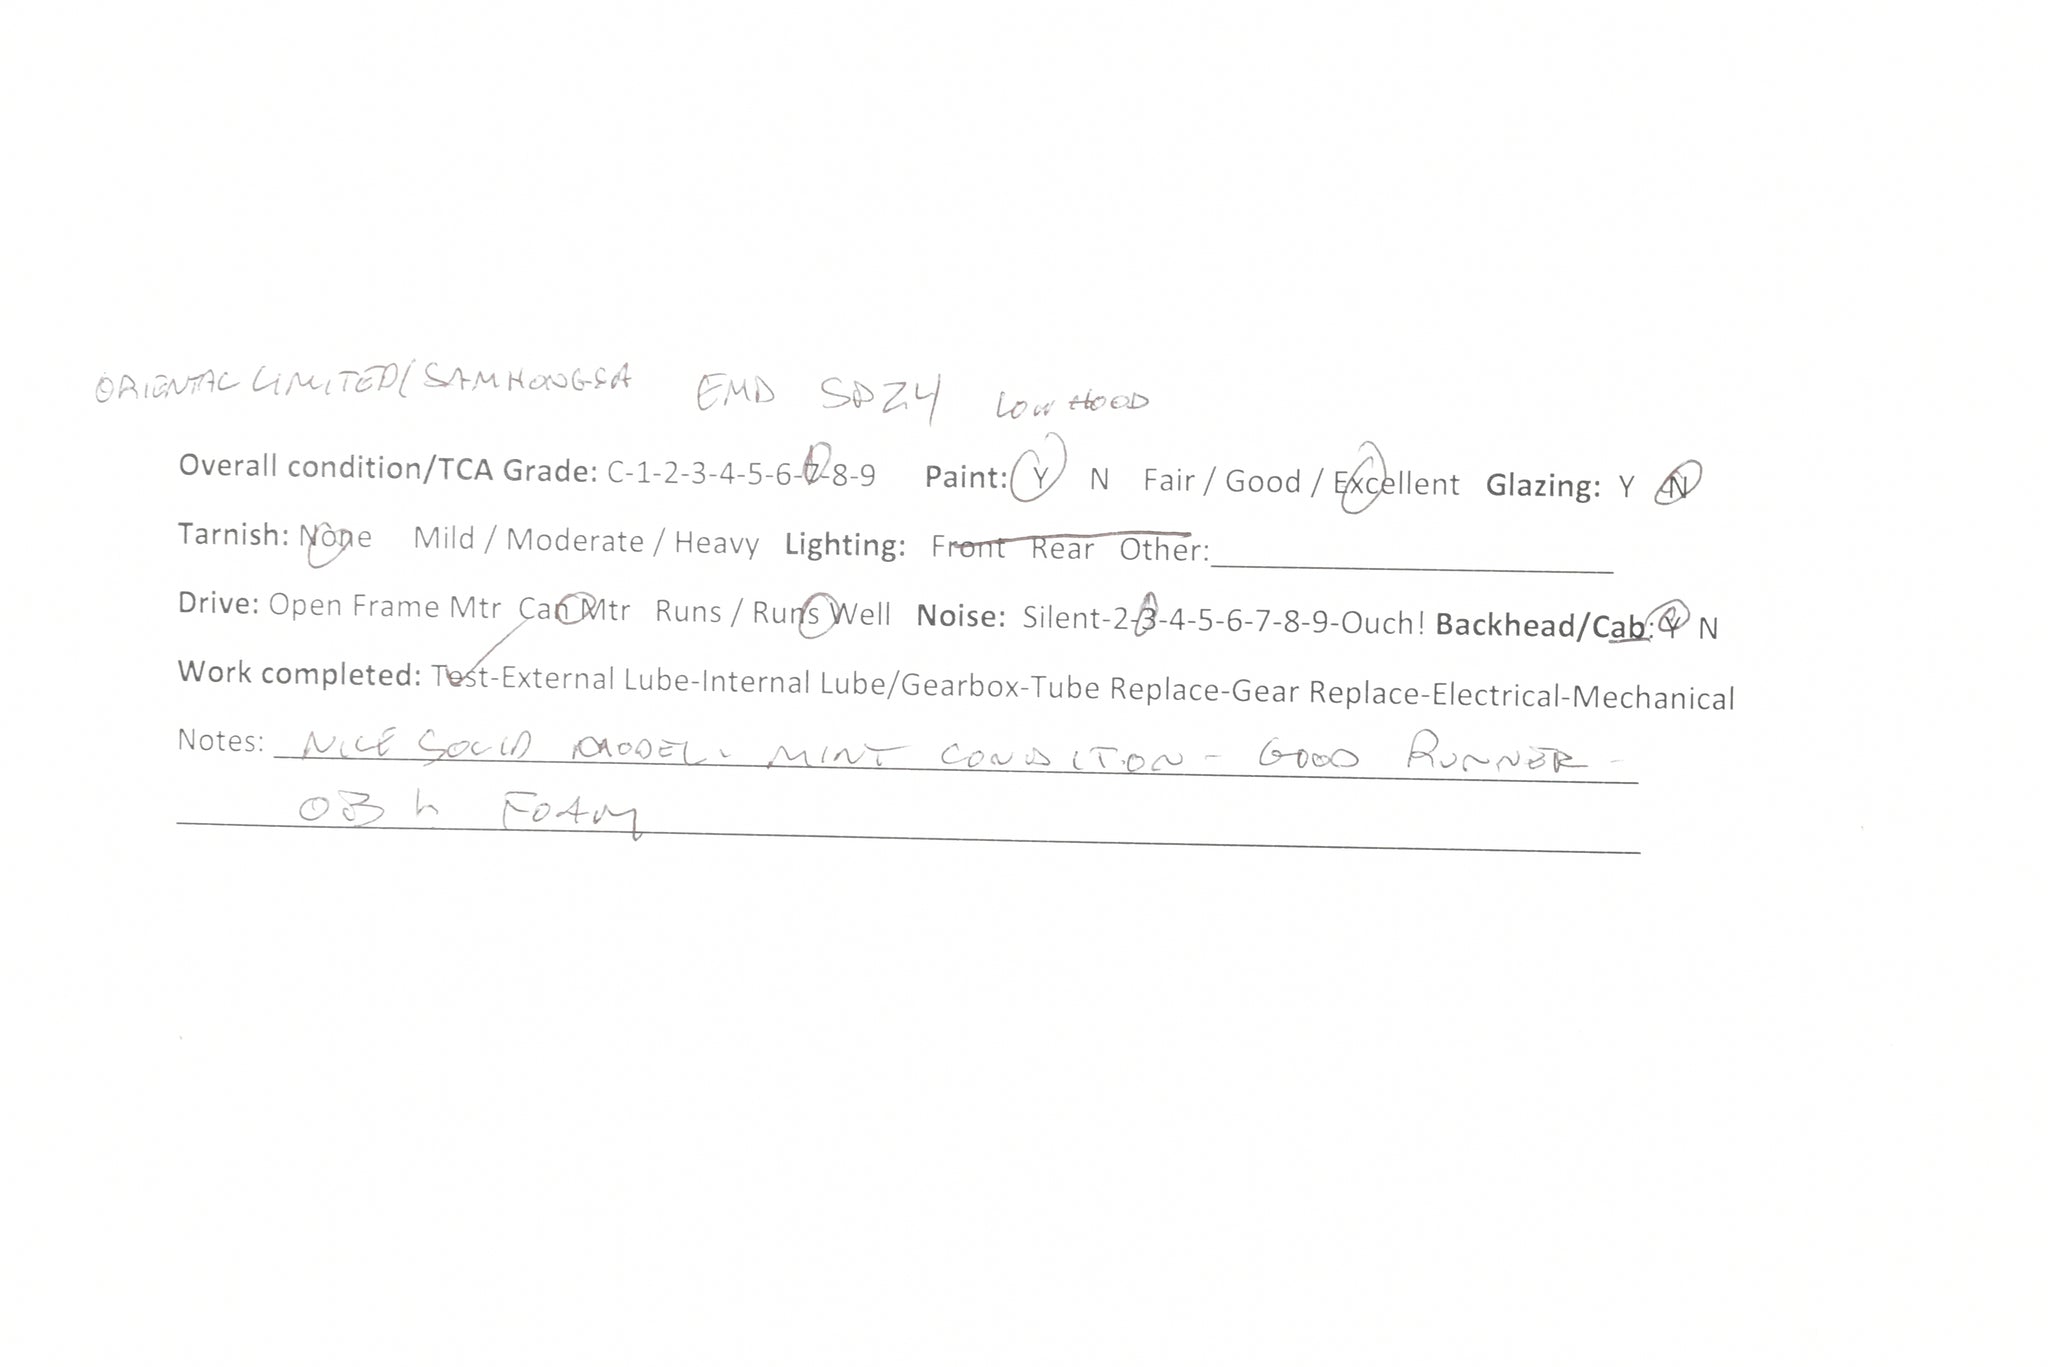 ORIENTAL LIMITED/SAMHONGSA EMD SD24 LOW HOOD
Overall condition/TCA Grade: C-1-2-3-4-5-6-7-8-9 Paint: Y N Fair / Good / Excellent Glazing: Y N
Tarnish: None Mild / Moderate / Heavy Lighting: Front Rear Other:
Drive: Open Frame Mtr Can Mtr Runs / Runs Well Noise: Silent-2-3-4-5-6-7-8-9-Ouch! Backhead/Cab: Y N
Work completed: Test-External Lube-Internal Lube/Gearbox-Tube Replace-Gear Replace-Electrical-Mechanical
Notes: NICE SOLID MODEL - MINT CONDITION - GOOD RUNNER -
OB FOAM